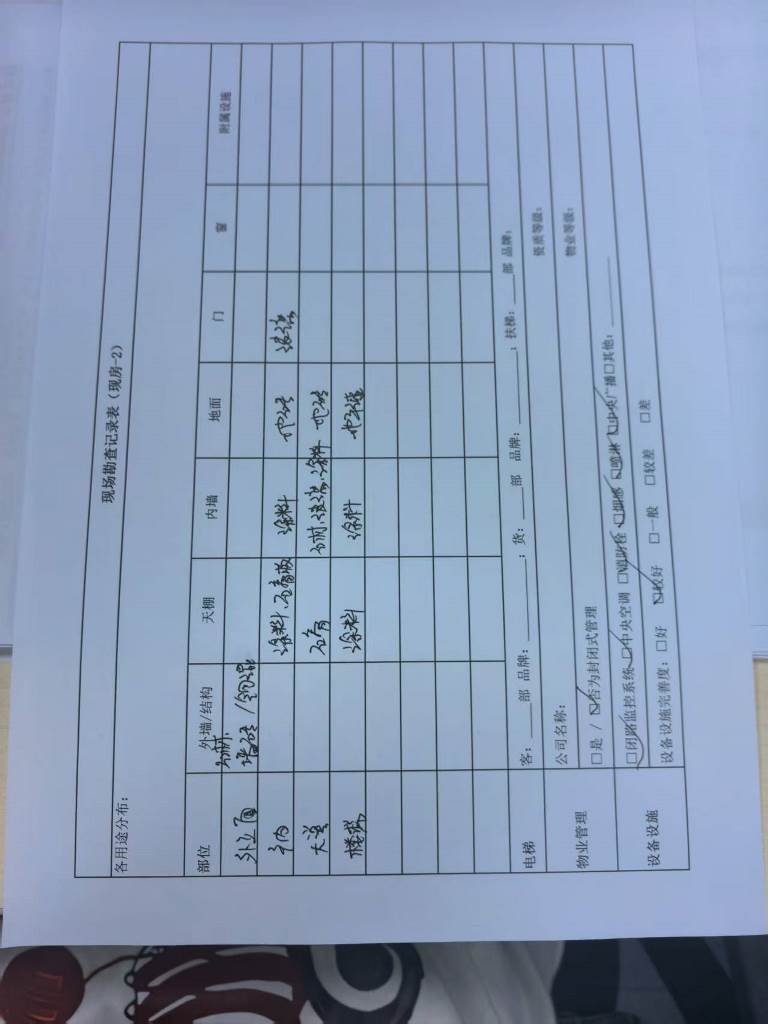 现场勘查记录表（现房-2）
各用途分布：
部位 外墙/结构 天棚 内墙 地面 门 窗 附属设施
外立面 石材、墙砖/钢混
户内 涂料、石膏板 涂料 地砖 玻璃
大堂 石膏 石材、玻璃、涂料 地砖
楼梯 涂料 涂料 水泥
电梯 客：____部 品牌：________；货：____部 品牌：________；扶梯：____部 品牌：
物业管理 公司名称： 资质等级：
□是 / ☑否为封闭式管理 物业等级：
设备设施 ☑闭路监控系统 ☑中央空调 ☑消防栓 ☑烟感 ☑喷淋 ☑中央广播 □其他：________
设备设施完善度：□好 ☑较好 □一般 □较差 □差